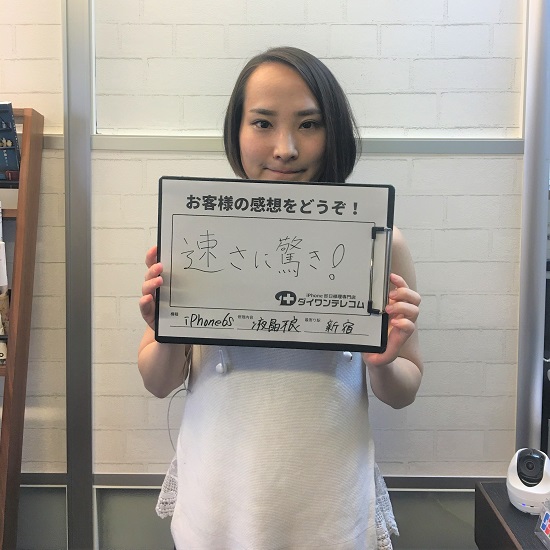 お客様の感想をどうぞ！
速さに驚き！
iPhone即日修理専門店
ダイワンテレコム
機種 iPhone6s 修理内容 液晶不良 最寄り駅 新宿